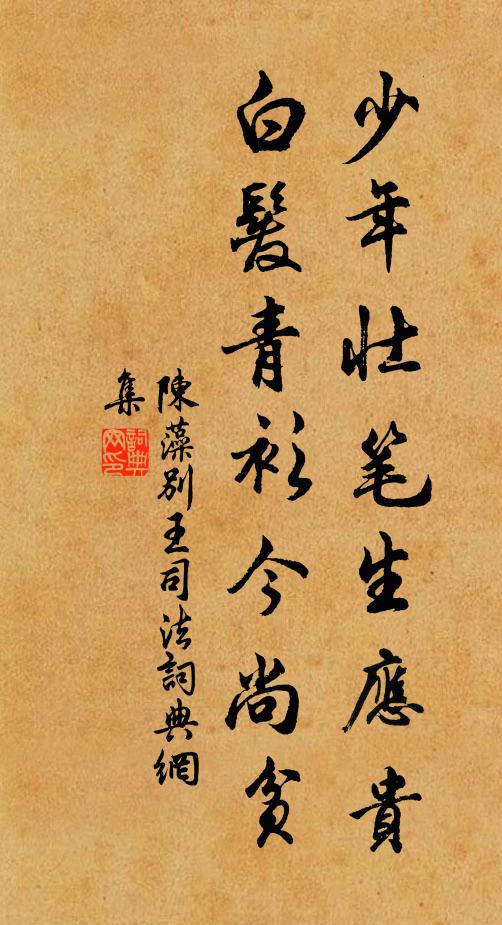 少年壯笔生應貴
白髮青衫今尚貧
陳藻别王司法詞典網
集
詞典
网印